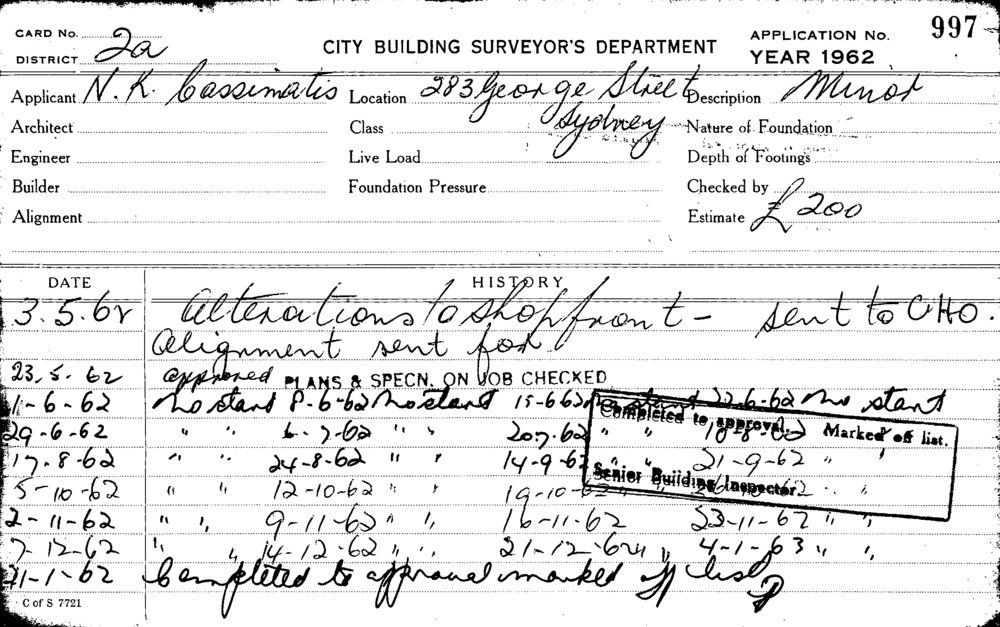 CARD No.
997
DISTRICT 2a
CITY BUILDING SURVEYOR'S DEPARTMENT
APPLICATION No.
YEAR 1962
Applicant N. K. Cassimatis Location 283 George Street Description Minor
Architect Class Sydney Nature of Foundation
Engineer Live Load Depth of Footings
Builder Foundation Pressure Checked by
Alignment Estimate £ 200
DATE HISTORY
3.5.62 Alterations to shopfront - sent to CHO.
Alignment sent for
23.5.62 approved PLANS & SPECN. ON JOB CHECKED
1-6-62 No start 8-6-62 No start 15-6-62 No start 22-6-62 No start
29-6-62 " " 6-7-62 " " 20-7-62 " " 10-8-62
Completed to approval. Marked off list.
17-8-62 " " 24-8-62 " " 14-9-62 " " 21-9-62 " "
Senior Building Inspector.
5-10-62 " " 12-10-62 " " 19-10-62 " " 26-10-62 "
2-11-62 " " 9-11-62 " " 16-11-62 23-11-62 " "
7-12-62 " " 14-12-62 " " 21-12-62 " " 4-1-63 " "
21-1-62 Completed to approval marked off list
C of S 7721